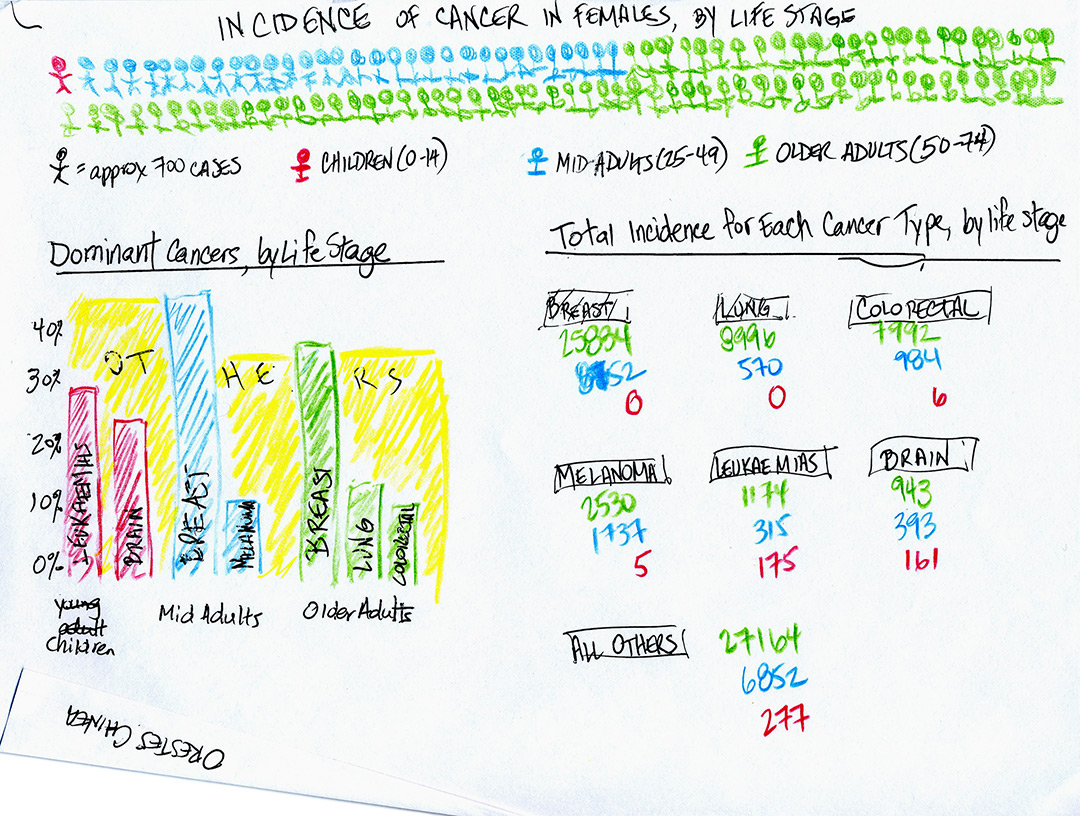 INCIDENCE OF CANCER IN FEMALES, BY LIFE STAGE
= approx 700 CASES
CHILDREN (0-14)
MID-ADULTS (25-49)
OLDER ADULTS (50-74)
Dominant Cancers, by Life Stage
40%
30%
20%
10%
0%
OTHERS
LEUKAEMIAS
BRAIN
BREAST
MELANOMA
BREAST
LUNG
COLORECTAL
young
adult
Children
Mid Adults
Older Adults
Total Incidence for Each Cancer Type, by life stage
BREAST
25834
8752
0
LUNG
8996
570
0
COLORECTAL
7992
984
6
MELANOMA
2530
1737
5
LEUKAEMIAS
1174
315
175
BRAIN
943
393
161
ALL OTHERS
27164
6852
277
ORESTES CHINEA